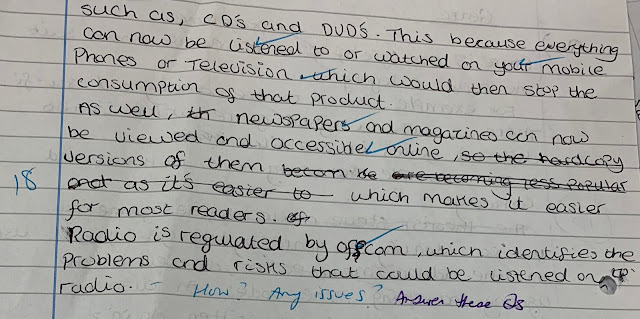 such as, CD's and DVD's. This because everything
can now be listened to or watched on your mobile
Phones or Television which would then stop the
consumption of that product.
As well, newspapers and magazines can now
be viewed and accessible online, so the hardcopy
versions of them becom are becoming less popular
18 and as it's easier to which makes it easier
for most readers.
Radio is regulated by ofcom, which identifies the
problems and risks that could be listened on
radio. - How? Any issues? Answer these Qs